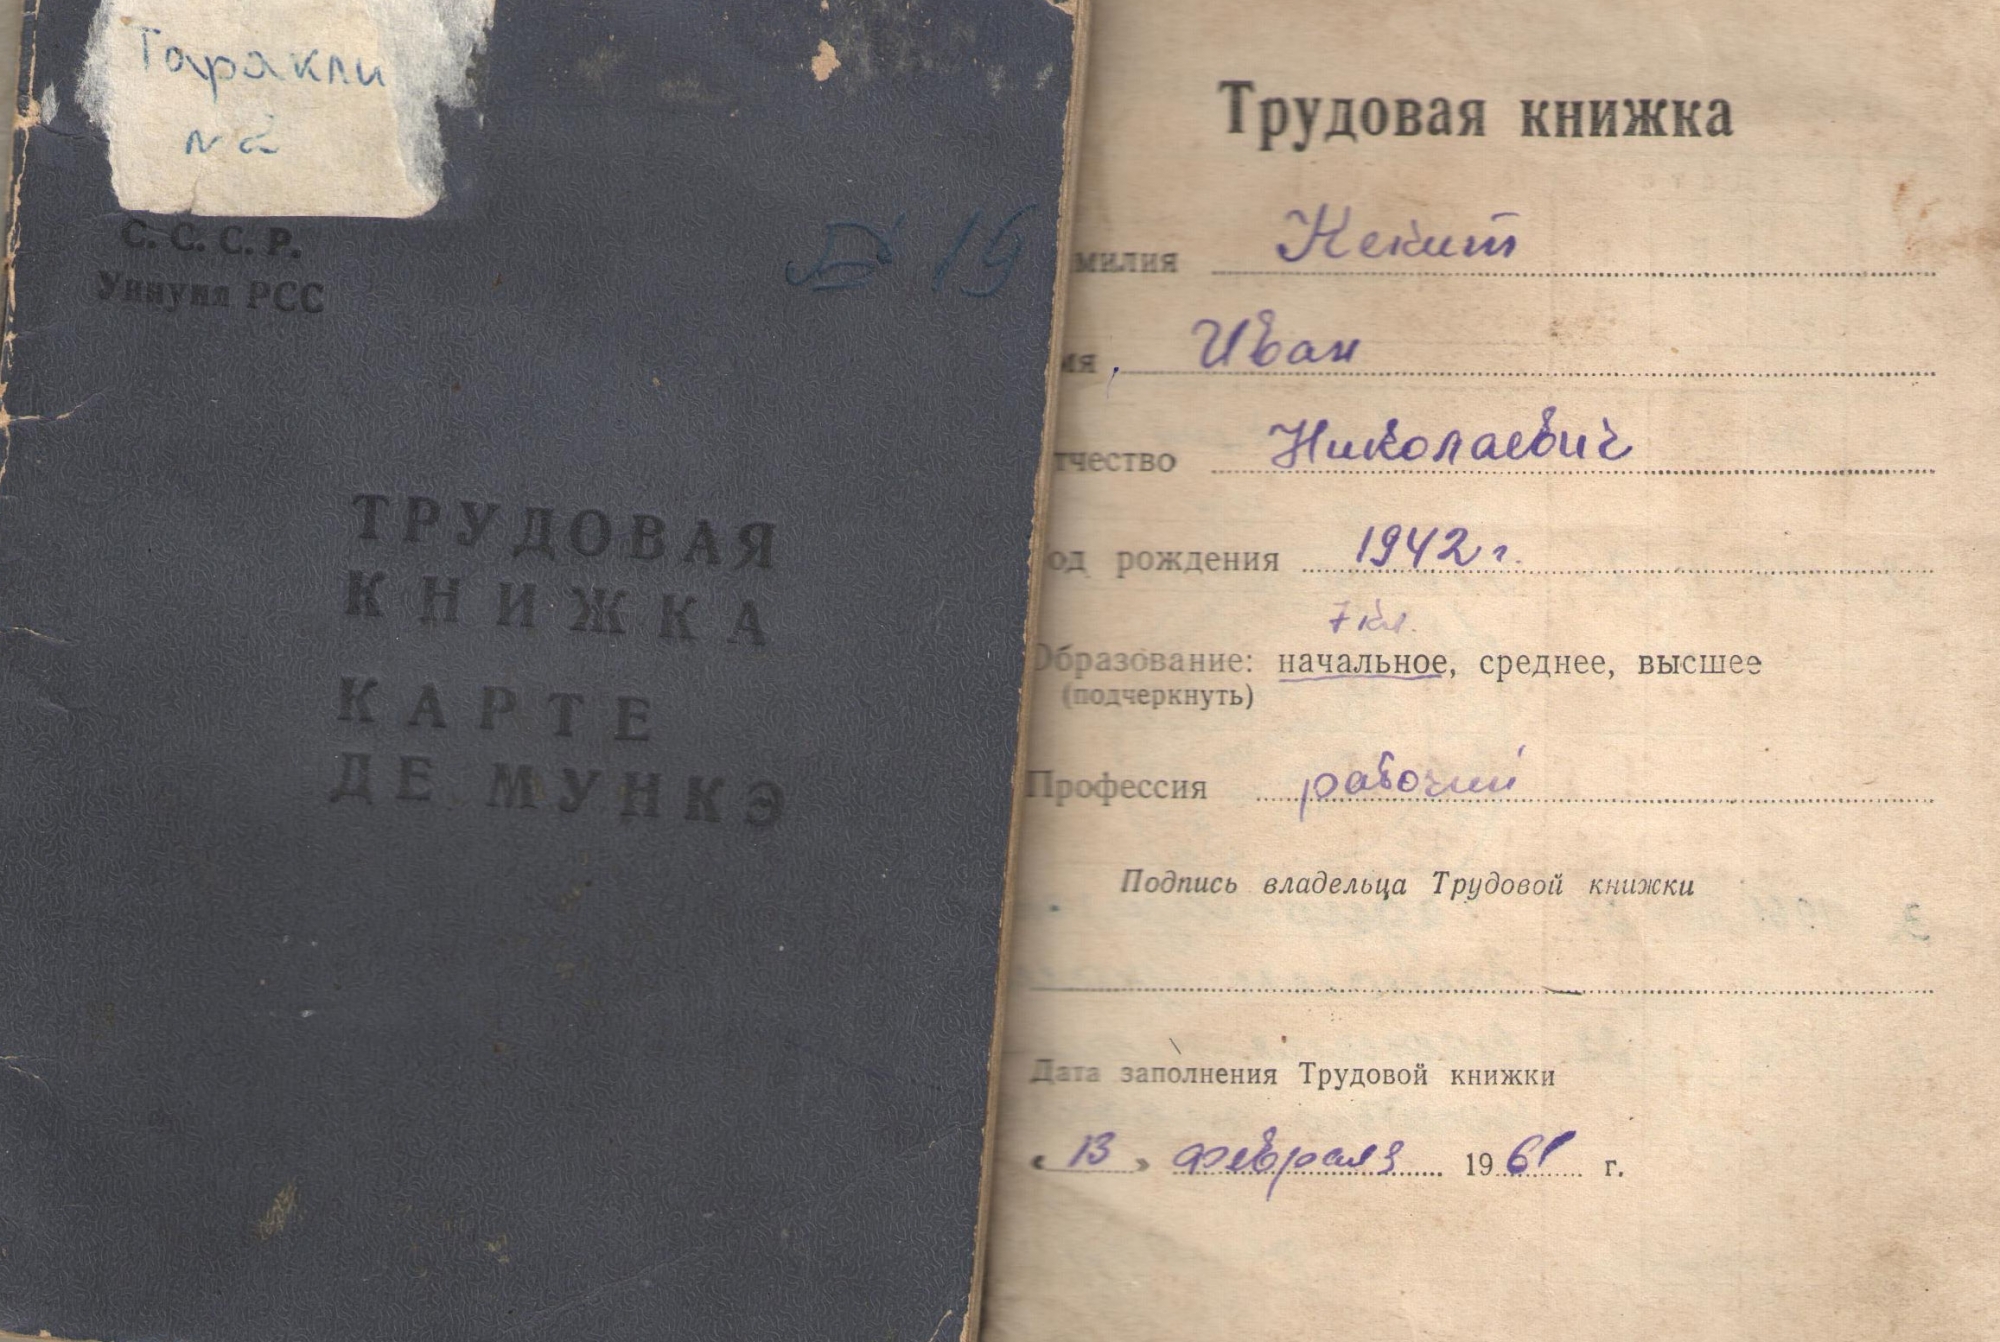 Таракли
N 2
С. С. С. Р.
Униуня РСС
19
ТРУДОВАЯ
КНИЖКА
КАРТЕ
ДЕ МУНКЭ
Трудовая книжка
милия Кекит
мя Иван
тчество Николаевич
од рождения 1942 г.
7 кл.
Образование: начальное, среднее, высшее
(подчеркнуть)
Профессия рабочий
Подпись владельца Трудовой книжки
Дата заполнения Трудовой книжки
« 13 » февраля 1961 г.